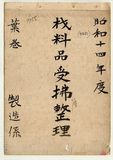 昭和十四年度
材料品受拂整理
葉巻 製造係